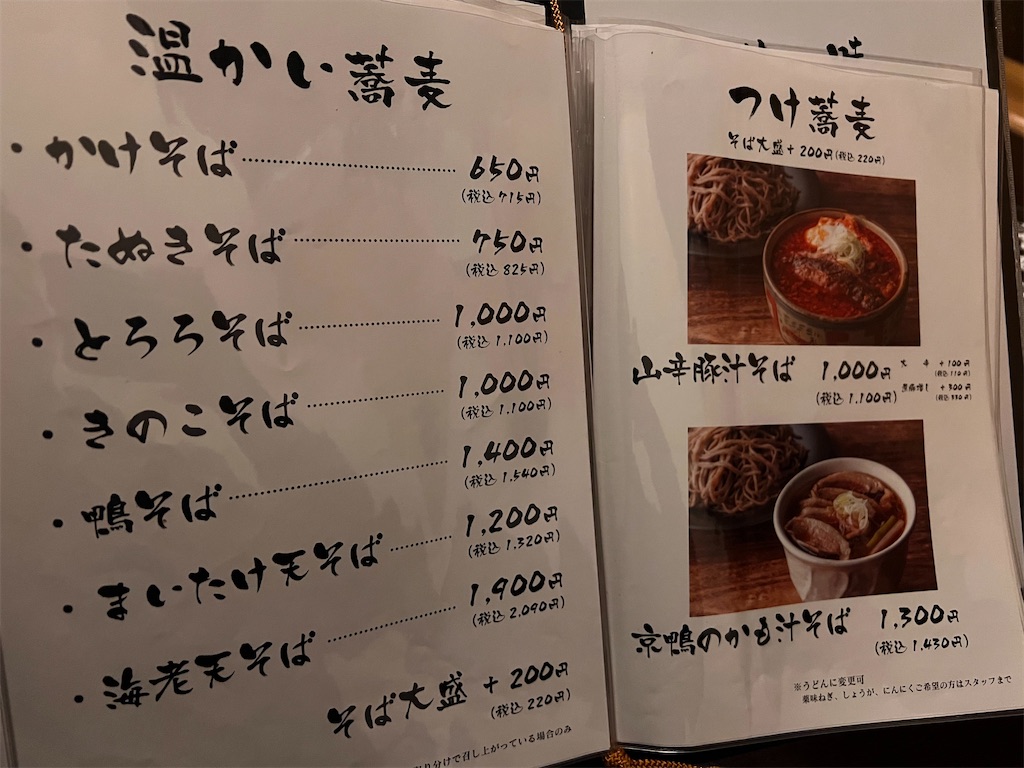 温かい蕎麦
・かけそば 650円
(税込 715円)
・たぬきそば 750円
(税込 825円)
・とろろそば 1,000円
(税込 1.100円)
・きのこそば 1,000円
(税込 1.100円)
・鴨そば 1,400円
(税込 1.540円)
・まいたけ天そば 1,200円
(税込 1.320円)
・海老天そば 1,900円
(税込 2.090円)
そば大盛 + 200円
(税込 220円)
り分けで召し上がっている場合のみ
味
つけ蕎麦
そば大盛 + 200円(税込 220円)
山辛豚汁そば 1,000円
(税込 1.100円)
大辛 +100円
(税込 110円)
増し +300円
(税込 330円)
京鴨のかも汁そば 1,300円
(税込 1.430円)
※うどんに変更可
薬味ねぎ、しょうが、にんにくご希望の方はスタッフまで